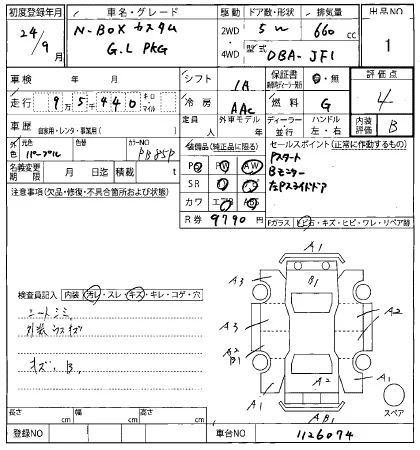 初度登録年月 車名・グレード 駆動 ドア数・形状 排気量 出品NO
24/9月 N-BOX カスタム G.L PKG 2WD・4WD 5W 660cc 1
型式 DBA-JF1
車検 年 月 シフト IA 保証書 ・無 評価点
走行 9万5千440 キロ・マイル 冷房 AAC 燃料 G 4
車歴 自家用・レンタ・事業用( ) 定員 人 外車モデル 年 ディーラー・並行 ハンドル 左・右 内装評価 B
外 元色 パープル 色替 カラーNO PB85P 装備品(純正品に限る) セールスポイント(正常に作動するもの)
名義変更期限 月 日迄 積載 t PS PW AW Pスタート
注意事項(欠品・修復・不具合箇所および状態) SR ナビ TV Bモニター
カワ エアB ABS 左Pスライドドア
R券 9790円 Fガラス 飛石・キズ・ヒビ・ワレ・リペア替
A1
A3 B1
A3 A2
A2 B1
A2
A1 A1
AB1
スペア
検査員記入 内装 汚レ・スレ・キズ・キレ・コゲ・穴
シートシミ
外装ウスキズ
キズ、B、
長さ cm 幅 cm 高さ cm
登録NO 車台NO 1126074